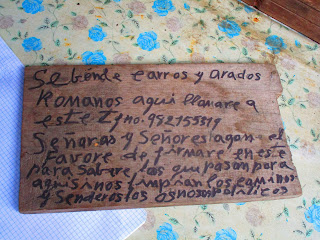 Se bende carros y arados
Romanos aqui llamare a
este Tfno. 982155519
Señoras y Señores agan el
favore de firmare en este
para sabare los que pasan por a
aqui si nos limpian los caminos
y Senderos los